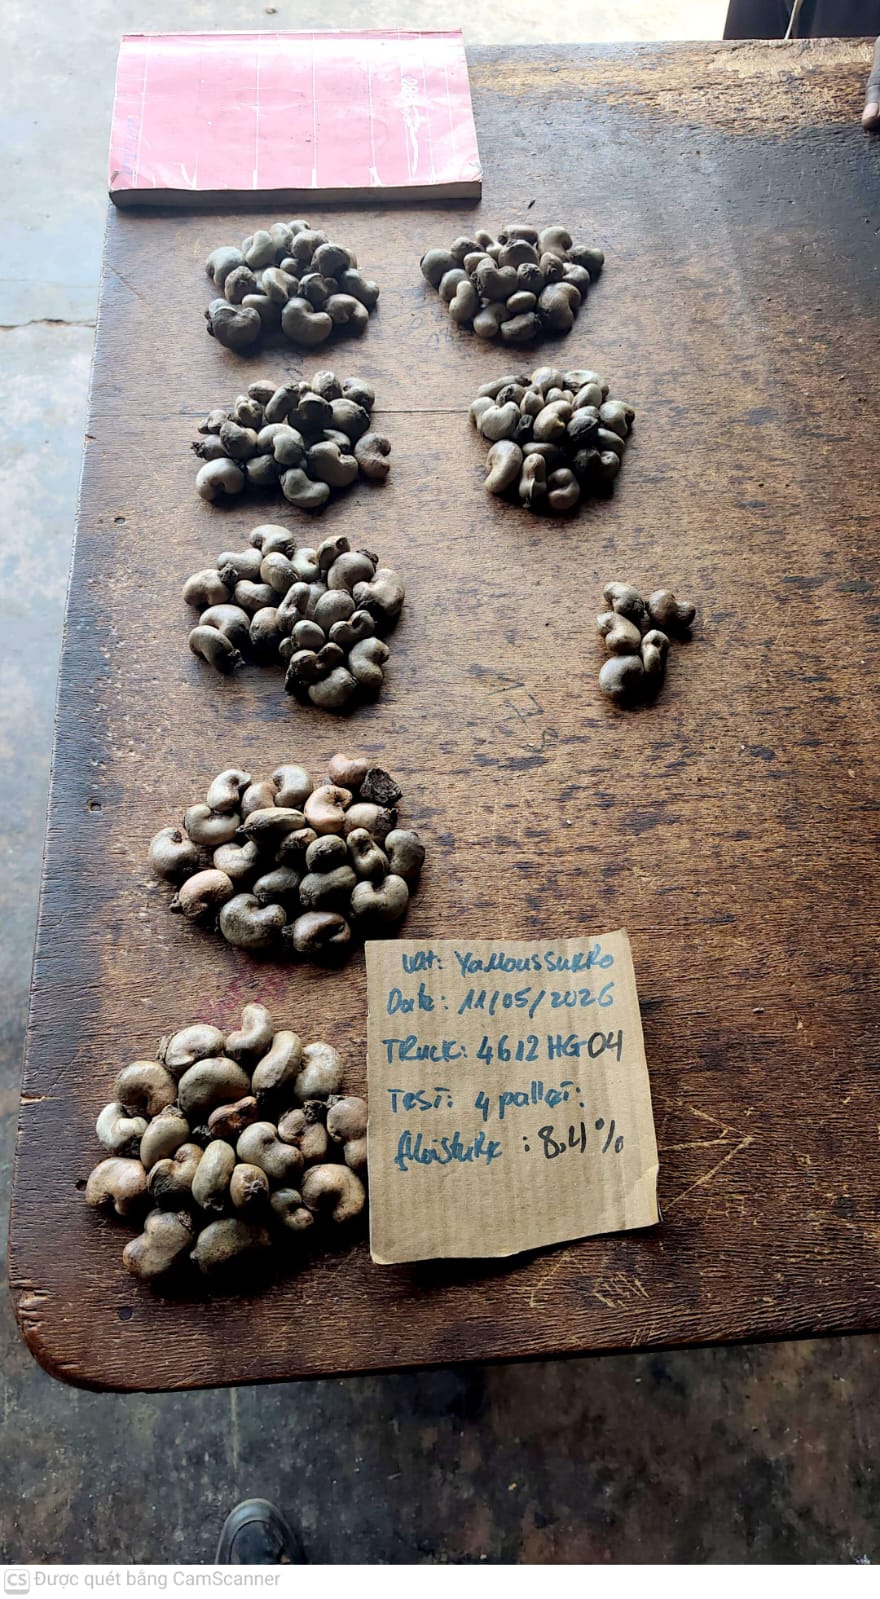 Unt: YaMoussukRo
Date: 11/05/2026
TRuck: 4612HG04
TEST: 4 pallet:
MoistuRe : 8.4%
CS Được quét bằng CamScanner